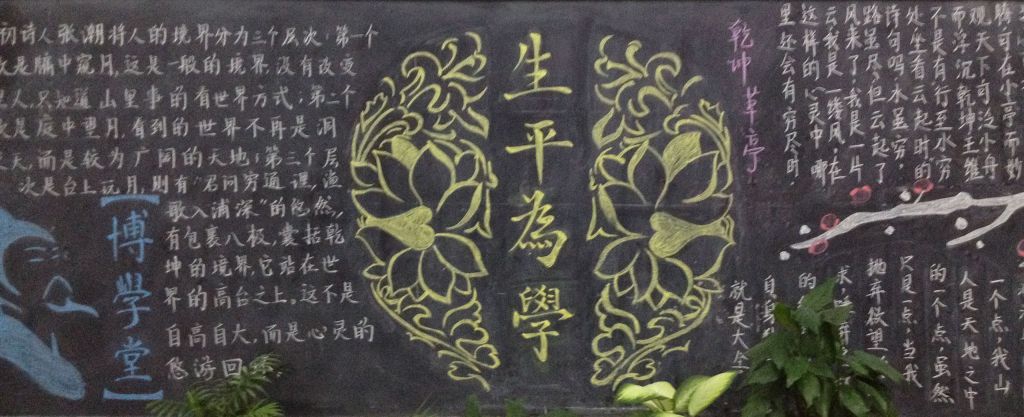 初诗人张潮将人的境界分为三个层次：第一个
次是牖中窥月，这是一般的境界，没有改变
里人，只知道山里事的有世界方式；第二个
次是庭中望月，看到的世界不再是洞
天，而是较为广阔的天地；第三个层
次是台上玩月，则有“君问穷通理，渔
歌入浦深”的悠然，
有包裹八极，囊括乾
坤的境界，它站在世
界的高台之上。这不是
自高自大，而是心灵的
悠游回
【博學堂】
生平為學
乾坤草亭
腾可在小亭而妙
观天下，可泛小舟
而浮沉乾坤，王维
不是有行至水穷
处，坐看云起时的
诗句吗，水虽穷，
路虽尽，但云起了，
风来了，我是一片
云，我是一缕风，在
这样的心灵中，哪
里还会有穷尽时。
一个点，我山
人是天地之中
的一个点，虽然
只是一点，当我
抛弃欲望，
求
的
自身
就是大全